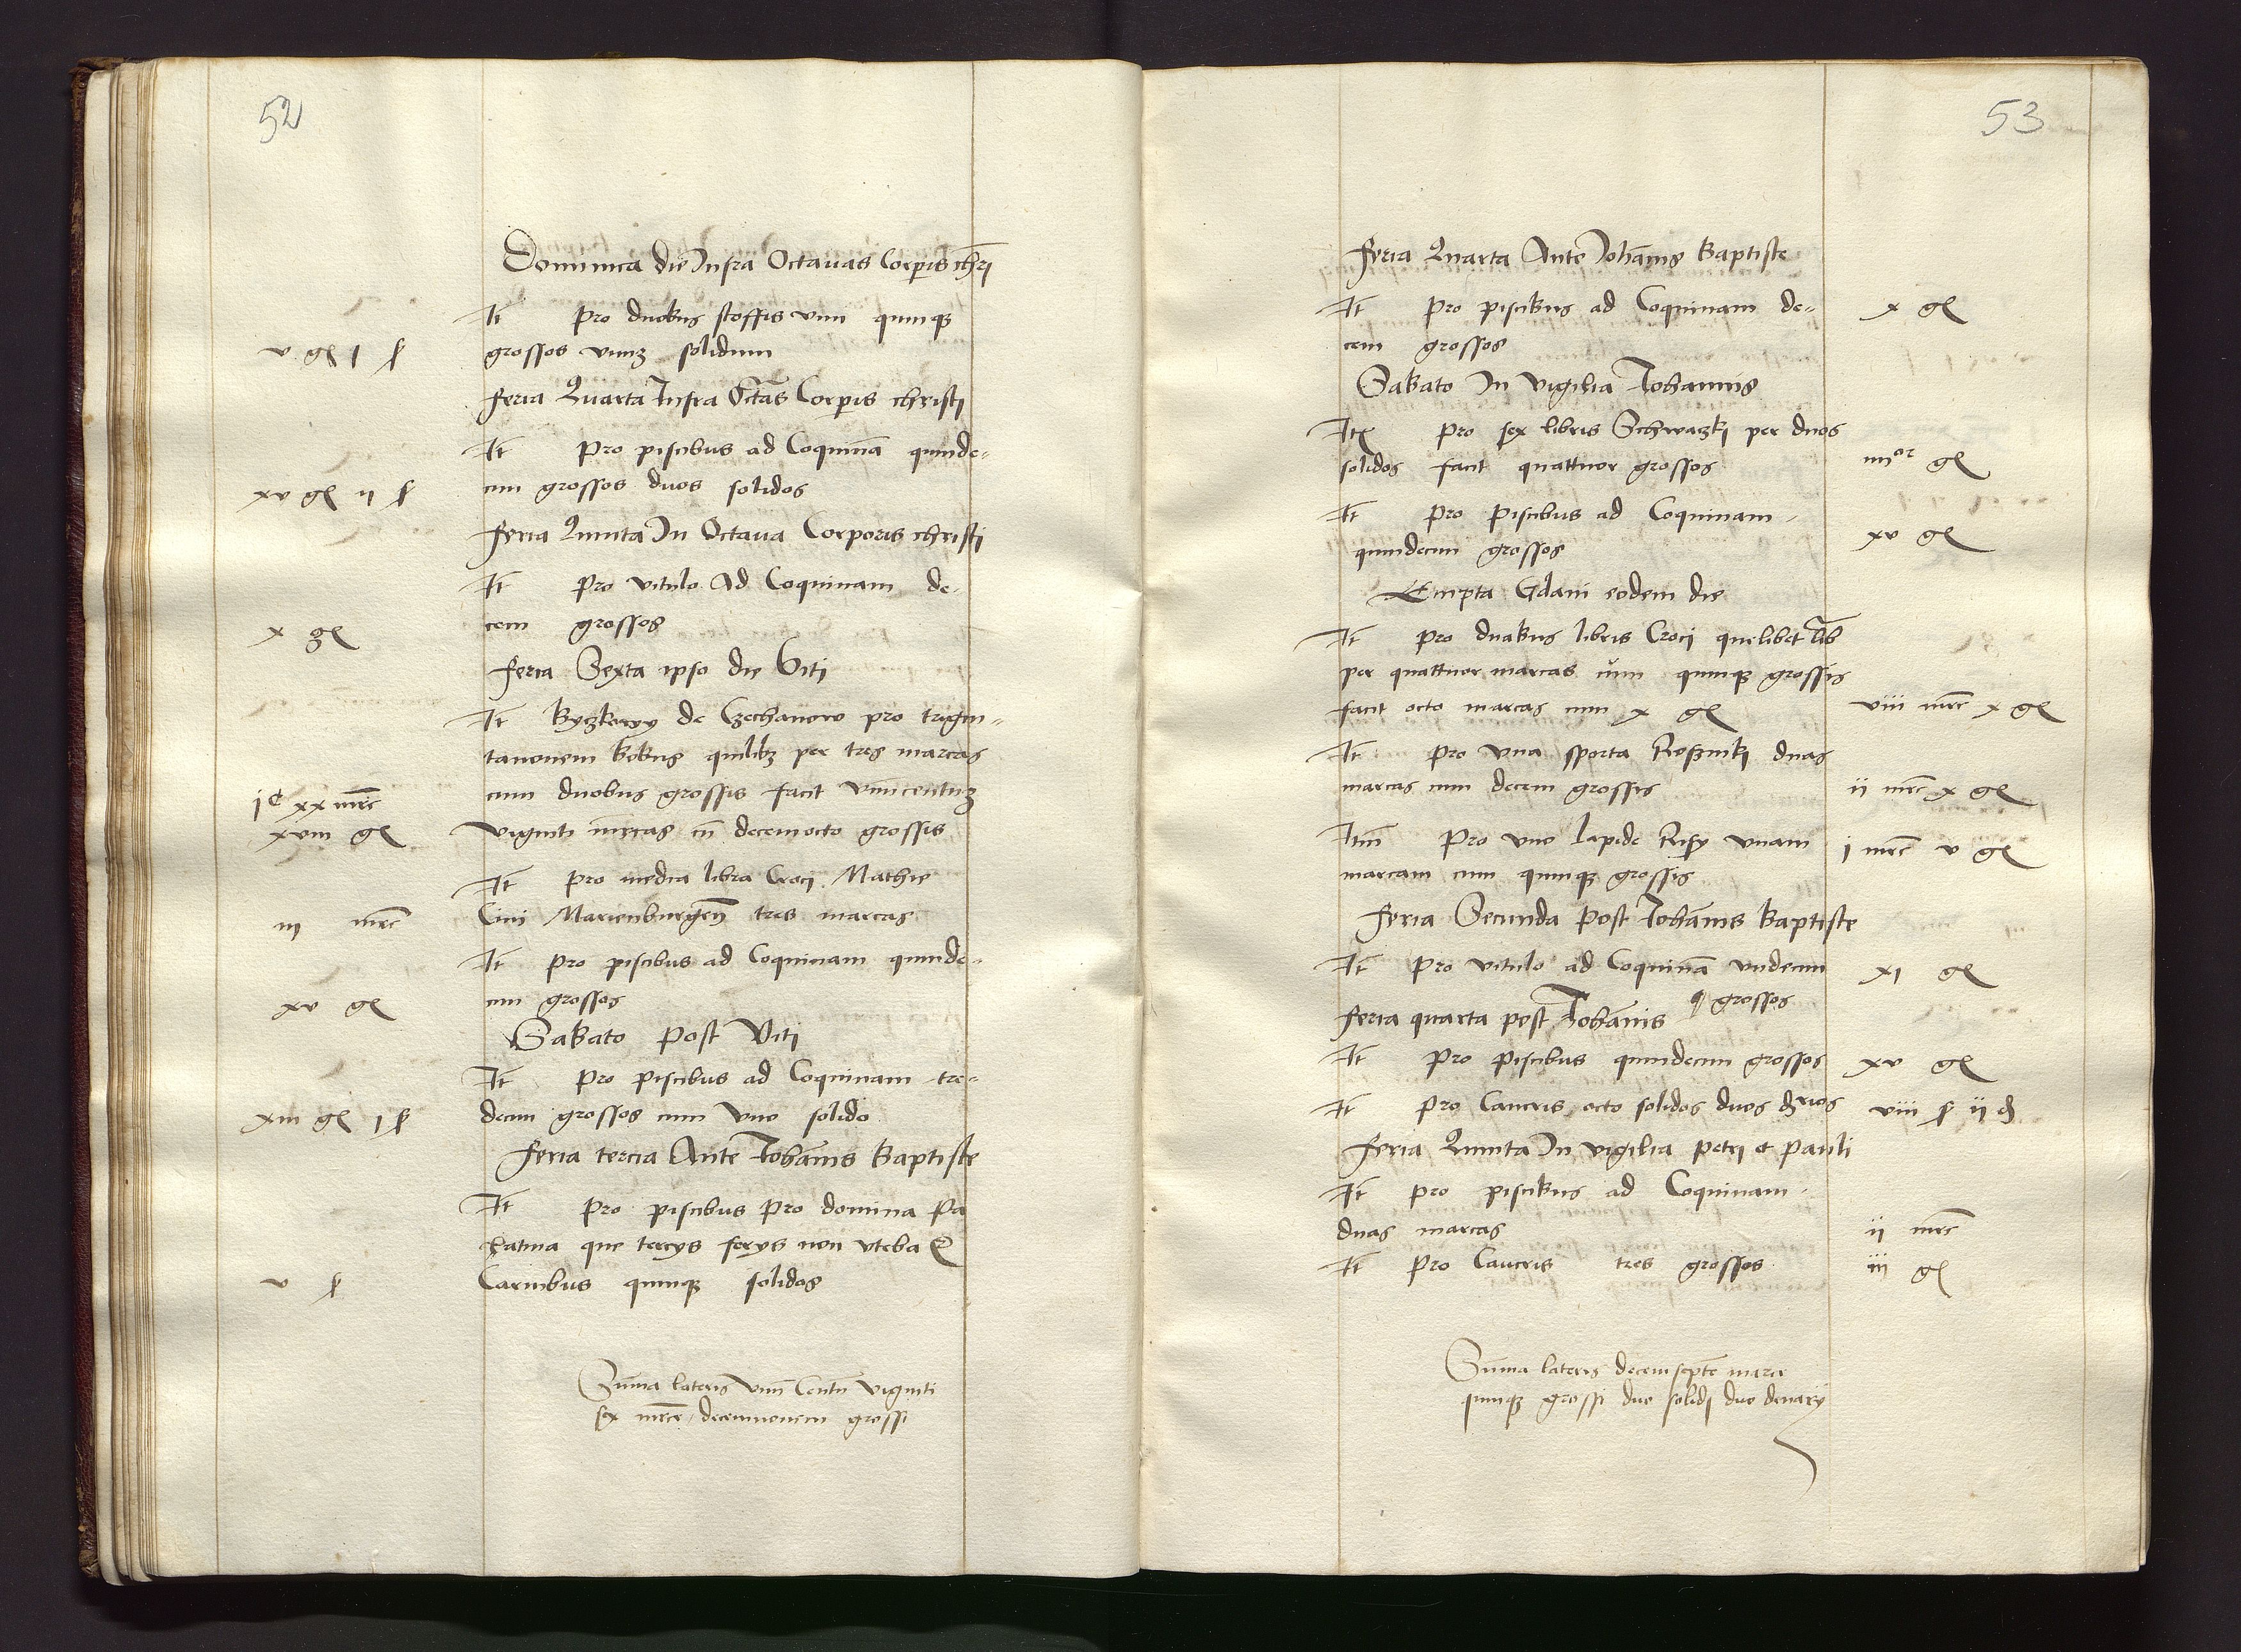 52
Dominica die Infra Octauas Corpris chri
It pro duobus stoffis vini quinqz
v gß 1 ß grossos vnuz solidum
feria Quarta Infra Octas Corpris christi
It pro piscibus ad Coquina quinde-
xv gß ij ß cim grossos duos solidos
feria Quinta In Octaua Corporis christi
It pro vitulo ad Coquinam de-
x gß cem grossos
feria Sexta ipso die Viti
It Byzkowy de Czechanow pro trigin-
tanouem bobus quilibz per tres marcas
jc xx mrc cum duobus grossis facit vnucentuz
xviii gß viginti mrcas cu decemocto grossis
It pro media libra Croci Mathie
iij mrc Ciui Marienburgen tres marcas
It pro piscibus ad Coquinam quinde-
xv gß cim grossos
Sabato post Viti
It pro piscibus ad Coquinam tre-
xiii gß 1 ß decim grossos cum vno solido
feria tercia Ante Johannis Baptiste
It pro piscibus pro domina Pa
latina que tercys ferys non vteba
v ß Carnibus quinqz solidos
Suma lateris vnu Centu viginti
sex mrce decemnouem grossi
53
feria Quarta Ante Johannis Baptiste
It pro piscibus ad Coquinam de- x gß
cem grossos
Sabato In vigilia Johannis
Ite pro sex libris Schwaczki per duos
solidos facit quattuor grossos iiiior gß
It pro piscibus ad Coquinam
quindecim grossos xv gß
Empta Gdani eodem die
It pro duabus libris Croci quelibet lib
per quattuor marcas cum quinqz grossis
facit octo marcas cum x gß viii mrc x gß
It pro vna sporta Roszinki duas
marcas cum decem grossis ii mrc x gß
Itm pro vno lapide Risy vnam i mrc v gß
marcam cum quinqz grossis
feria Secunda post Johannis Baptiste
It pro vitulo ad Coquina vndecim xi gß
grossos
feria quarta post Johannis
It pro piscibus quindecim grossos xv gß
It pro Cancris octo solidos duos drios viii ß ii d
feria Quinta In vigilia petri et Pauli
It pro piscibus ad Coquinam
duas marcas ii mrc
It pro Cancris tres grossos iii gß
Suma lateris decemsepte marce
quinqz grossi duo solidi duo denarij